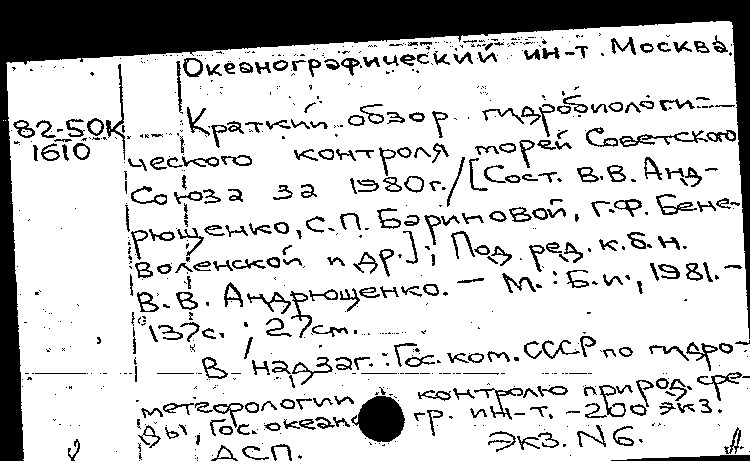 Океанографический ин-т. Москва.
82-50К
1610
Краткий обзор гидробиологи-
ческого контроля морей Советского
Союза за 1980г. / [Сост. В.В. Анд-
рющенко, С.П. Бариновой, Г.Ф. Бене-
воленской и др.]; Под ред. к.б.н.
В.В. Андрющенко. — М.: Б.и., 1981. —
137с.; 27см.
В надзаг.: Гос. ком. СССР по гидро-
метеорологии контролю природ. сре-
ды, Гос. океаногр. ин-т. - 200 экз.
ДСП. Экз. N6.